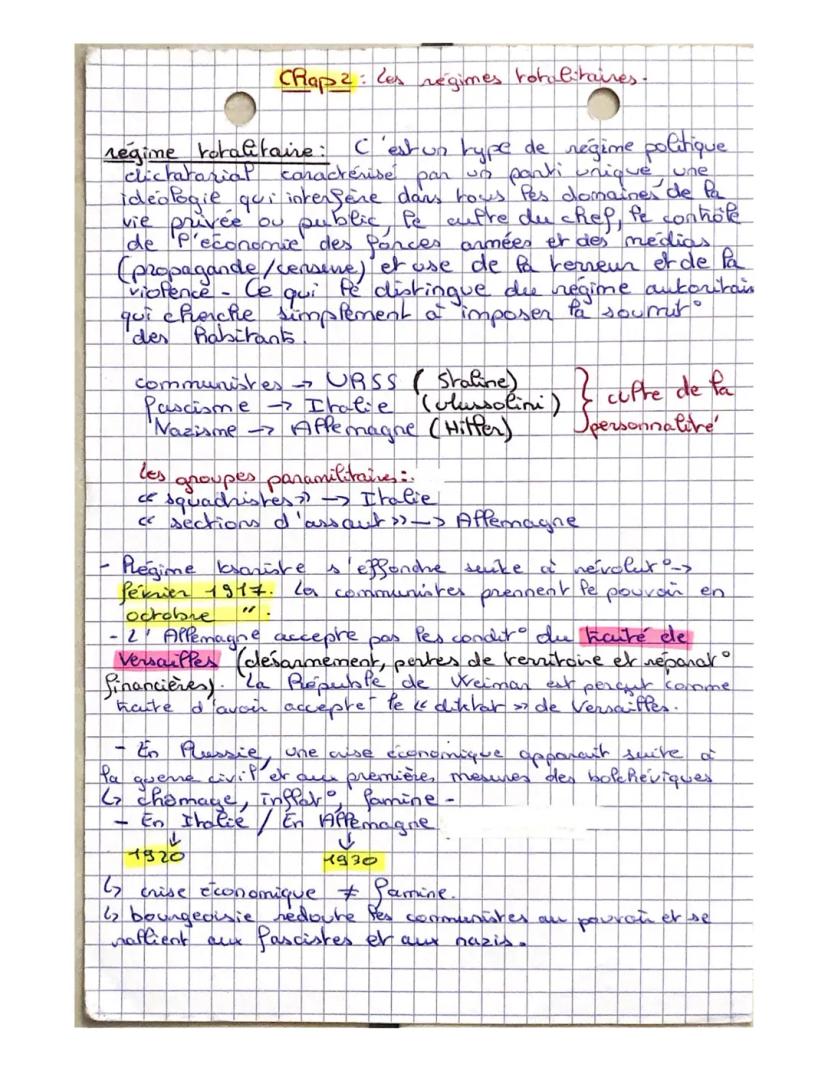 Chap 2 : Les régimes totalitaires.
régime totalitaire : C'est un type de régime politique
dictatorial caractérisé par un parti unique, une
idéologie qui interfère dans tous les domaines de la
vie privée ou public, le culte du chef, le contrôle
de l'économie des forces armées et des médias
(propagande/censure) et use de la terreur et de la
violence - Ce qui le distingue du régime autoritair
qui cherche simplement à imposer la soumit°
des habitants.
communistes → URSS (Staline)
fascisme → Italie (Mussolini)
Nazisme → Allemagne (Hitler)
} culte de la
personnalité
Les groupes paramilitaires :
« squadristes » → Italie
« sections d'assaut » → Allemagne
- Régime tsariste s'effondre suite à révolut° →
février 1917. Les communistes prennent le pouvoir en
octobre ".
- L'Allemagne accepte pas les condit° du traité de
Versailles (désarmement, pertes de territoire et réparat°
financières). La Républe de Weimar est perçut comme
traite d'avoir accepté le « diktat » de Versailles.
- En Russie, une crise économique apparait suite à
la guerre civil et aux première, mesures des bolchéviques
↳ chômage, inflat°, famine -
- En Italie / En Allemagne
↓ ↓
1920 1930
↳ crise économique ≠ famine.
↳ bourgeoisie redoute les communistes au pouvoir et se
rallient aux fascistes et aux nazis.